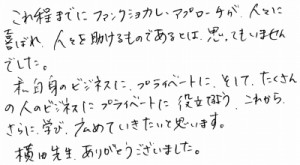 これ程までにファンクショナル・アプローチが、人々に
喜ばれ、人々を助けるものであるとは、思ってもいません
でした。
私自身のビジネスに、プライベートに、そして、たくさん
の人のビジネスに、プライベートに役立てるよう、これから、
さらに、学び、広めていきたいと思います。
横田先生、ありがとうございました。